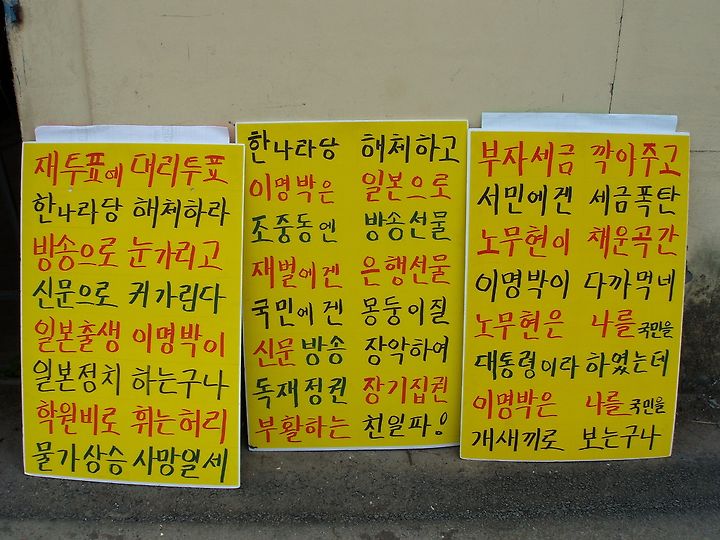 재투표에 대리투표
한나라당 해체하라
방송으로 눈가리고
신문으로 귀가립다
일본출생 이명박이
일본정치 하는구나
학원비로 휘는허리
물가상승 사망일세
한나라당 해체하고
이명박은 일본으로
조중동엔 방송선물
재벌에겐 은행선물
국민에겐 몽둥이질
신문방송 장악하여
독재정권 장기집권
부활하는 친일파ㅇ
부자세금 깍아주고
서민에겐 세금폭탄
노무현이 채운곡간
이명박이 다까먹네
노무현은 나를국민을
대통령이라 하였는데
이명박은 나를국민을
개새끼로 보는구나